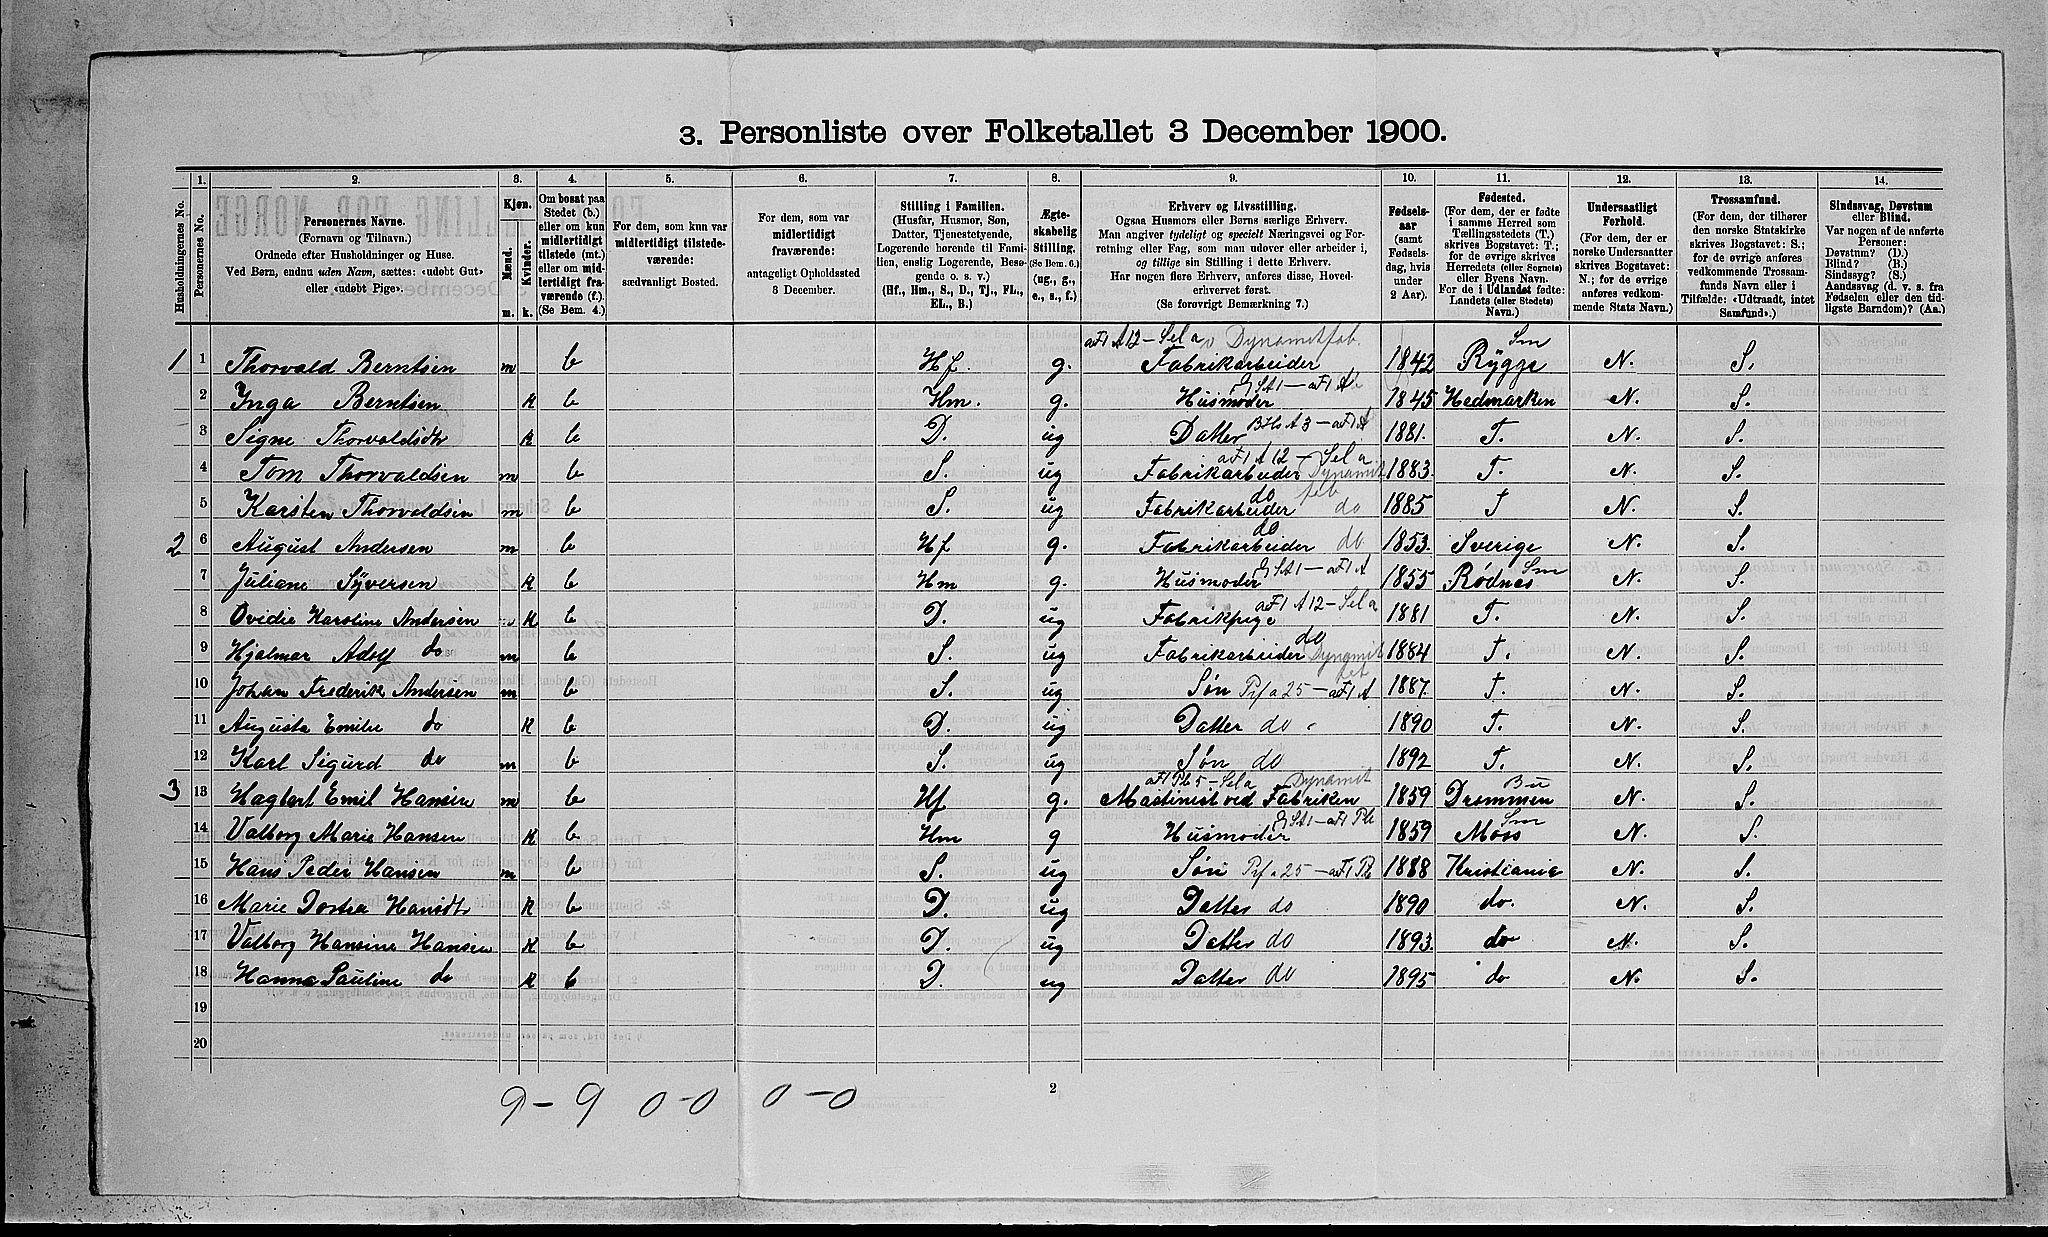 3. Personliste over Folketallet 3 December 1900.
Husholdningernes No.
1. Personernes No.
2. Personernes Navne.
(Fornavn og Tilnavn.)
Ordnede efter Husholdninger og Huse.
Ved Børn, endnu uden Navn, sættes: «udøbt Gut»
eller «udøbt Pige».
3. Kjøn.
Mænd. m.
Kvinder. k.
4. Om bosat paa
Stedet (b.)
eller om kun
midlertidigt
tilstede (mt.)
eller om mid-
lertidigt fra-
værende (f.)
(Se Bem. 4.)
5. For dem, som kun var
midlertidigt tilstede-
værende:
sædvanligt Bosted.
6. For dem, som var
midlertidigt
fraværende:
antageligt Opholdssted
3 December.
7. Stilling i Familien.
(Husfar, Husmor, Søn,
Datter, Tjenestetyende,
Logerende hørende til Fami-
lien, enslig Logerende, Besø-
gende o. s. v.)
(Hf., Hm., S., D., Tj., FL.,
EL., B.)
8. Ægte-
skabelig
Stilling.
(Se Bem. 6.)
(ug., g.,
e., s., f.)
9. Erhverv og Livsstilling.
Ogsaa Husmors eller Børns særlige Erhverv.
Man angiver tydeligt og specielt Næringsvei og For-
retning eller Fag, som man udover eller arbeider i,
og tillige sin Stilling i dette Erhverv.
Har nogen flere Erhverv, anføres disse, Hoved-
erhvervet først.
(Se forøvrigt Bemærkning 7.)
10. Fødsels-
aar
(samt
Fødsels-
dag, hvis
under
2 Aar).
11. Fødested.
(For dem, der er fødte
i samme Herred som
Tællingsstedets (T.)
skrives Bogstavet: T.;
for de øvrige skrives
Herredets (eller Sognets)
eller Byens Navn.
For de i Udlandet fødte:
Landets (eller Stedets)
Navn.)
12. Undersaatligt
Forhold.
(For dem, der er
norske Undersaatter
skrives Bogstavet:
N.; for de øvrige
anføres vedkom-
mende Stats Navn.)
13. Trossamfund.
(For dem, der tilhører
den norske Statskirke
skrives Bogstavet: S.;
for de øvrige anføres
vedkommende Trossam-
funds Navn eller i
Tilfælde: «Udtraadt, intet
Samfund».)
14. Sindssvag, Døvstum
eller Blind.
Var nogen af de anførte
Personer:
Døvstum? (D.)
Blind? (B.)
Sindssyg? (S.)
Aandssvag (d. v. s. fra
Fødselen eller den tid-
ligste Barndom)? (Aa.)
aF1 A12 – Sela Dynamitfab. Sm
1 1 Thorvald Berntsen m b Hf. g. Fabrikarbeider 1842 Rygge N. S.
2 Inga Berntsen k b Hm. g. Husmoder 1845 Hedmarken N. S.
3 Signe Thorvaldsdtr k b D. ug Datter 1881. T. N. S.
aF1 A12 – Sela
4 Tom Thorvaldsen m b S. ug Fabrikarbeider Dynamit 1883. T. N. S.
5 Karsten Thorvaldsen m b S. ug Fabrikarbeider do 1885 T N. S.
2 6 August Andersen m b Hf g. Fabrikarbeider do 1853. Sverige N. S.
7 Juliane Syversen k b Hm g. Husmoder 1855 Rødnes Sm N. S.
8 Ovidie Karoline Andersen k b D. ug Fabrikpige aF1 A12 – Sela 1881 T. N. S.
9 Hjalmar Adolf do m b S. ug Fabrikarbeider Dynamit 1884 T. N. S.
10 Johan Frederik Andersen m b S. ug Søn 25 – aF1 A 1887. T. N. S.
11 Augusta Emilie do k b D. ug Datter do 1890 T. N. S.
12 Karl Sigurd do m b S. ug Søn do 1892 T. N. S.
Sela Dynamit Bu
3 13 Hagbart Emil Hansen m b Hf g. Maskinist ved Fabriken 1859 Drammen N. S.
14 Valborg Marie Hansen k b Hm g Husmoder 1859 Moss Sm N. S.
15 Hans Peder Hansen m b S. ug Søn 25 – aF1 1888 Kristiania N. S.
16 Marie Dortea Hansdtr k b D. ug Datter do 1890 do. N. S.
17 Valborg Hansine Hansen k b D. ug Datter do 1893. do N. S.
18 Hanna Pauline do k b D. ug Datter do 1895 do N. S.
19
20
9 – 9 0–0 0–0
2